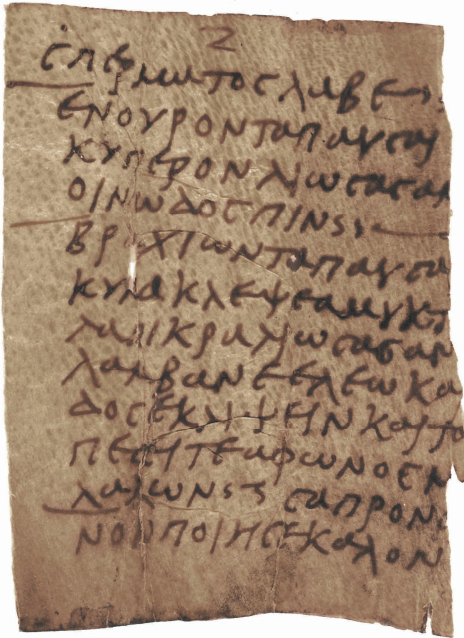 Ζ
ϲπερματοϲ λαβε
ενουροντα παυϲαι
κυπερον λιωϲαϲαν
οινω δοϲ πιν
βραχιωντα παυϲα
κυνα κλεψε αμυγδ
λα πικρα λιωϲαϲαν
λαμβανε ελεω κα
δοϲ εκλιψειν και το
πεϲητε αφωνοϲ μ
λαλων ϲαπρον
νον ποιηϲε καλον